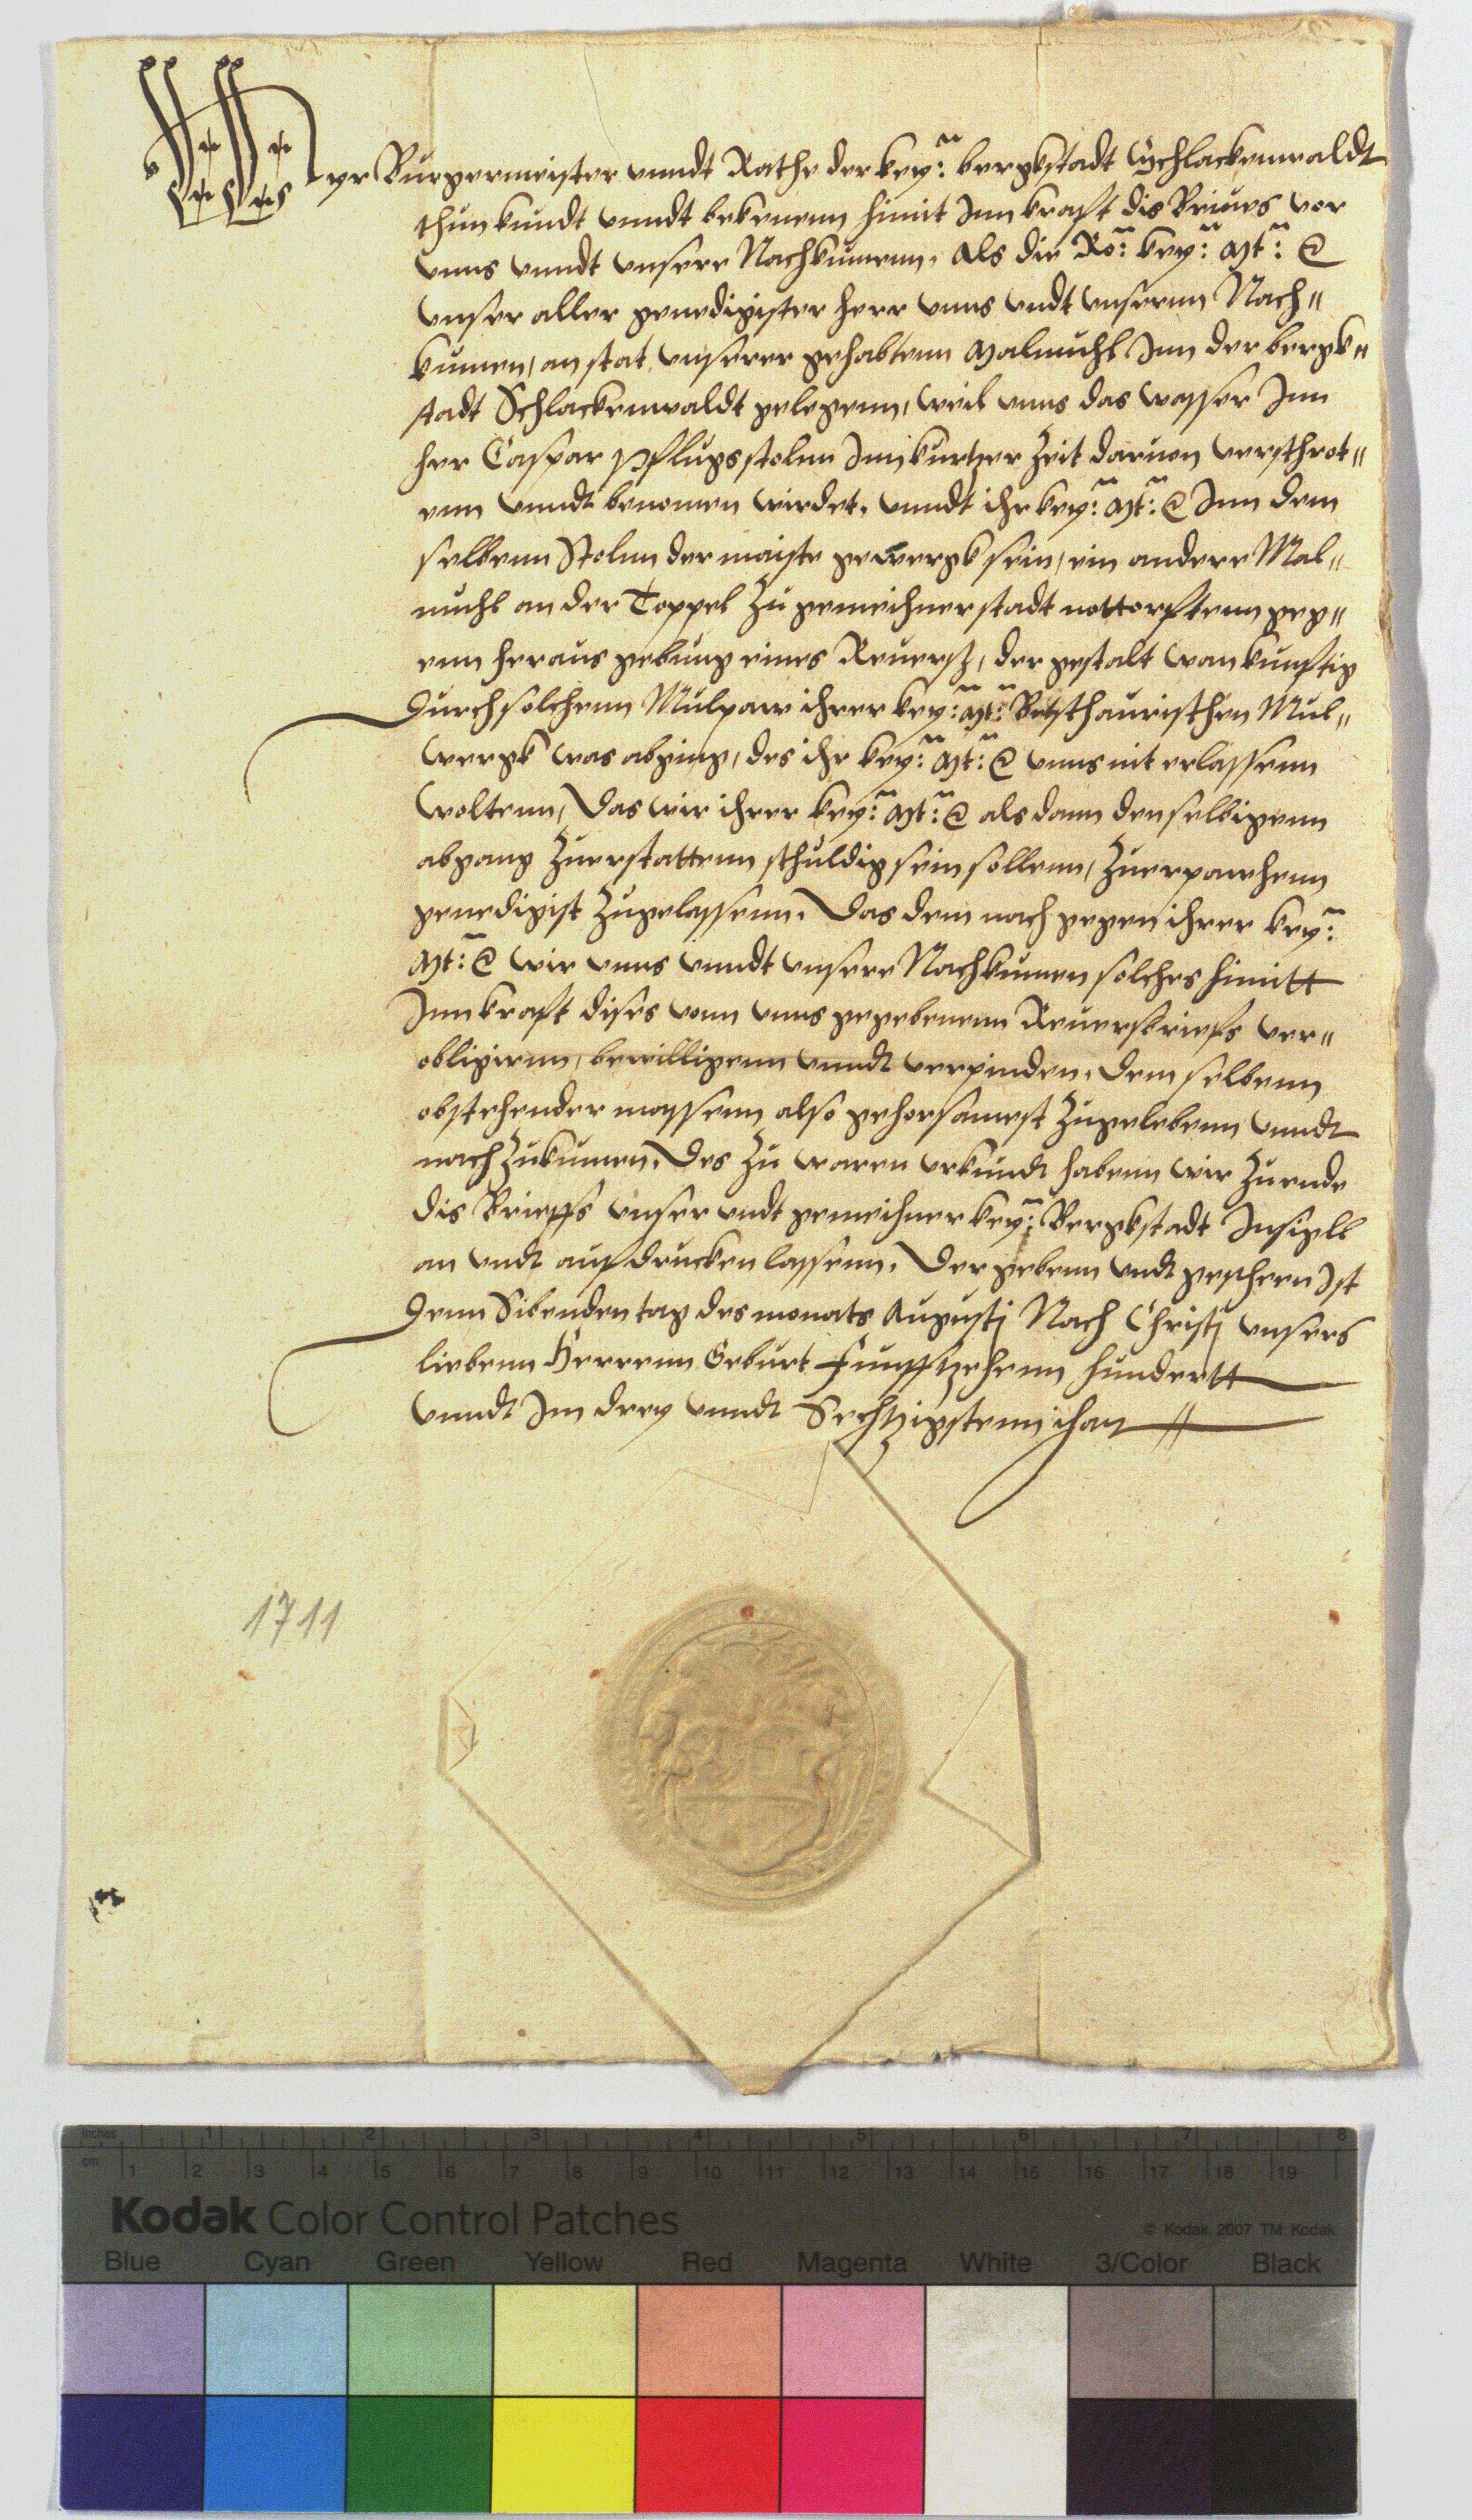 Wyr Burgermeister unndt Rathe der key: bergkstadt Schlackenwaldt
thun kundt unndt bekenenn himit Inn kraft dis Brives vor
unns unndt unsere Nachkumenn. Als die Ro: key: Mt: @
unser aller genedigister herr unns undt unserenn Nach"
kumen, an stat unserer gehabtenn Malmuhl Inn der bergk"
stadt Schlackenwaldt gelegenn, weil unns das wasser Inn
her Caspar Pflugs stolnn Inn kurtzer Zeit darvon verschrot"
enn unndt benomen wirdet, unndt ihr key: Mt: @ Inn dem
selbenn Stolnn der maiste gewergk sein, ein andere Mal"
muhl an der Toppel Zu gemeihner stadt nottorftenn geg"
enn heraus gebung eines Reversz, der gestalt wan kunftig
Durch solchenn Mulpaw ihrer key: Mt: Betschaurischen Mul"
wergk was abging, des ihr key: Mt: @ unns nit erlassenn
woltenn, Das wir ihrer key: Mt: @ als dann denselbigenn
abgang Zuerstattenn schuldig sein sollenn, Zuerpawhenn
genedigist Zugelassenn. Das dem nach gegen ihrer key:
Mt: @ wir unns unndt unsere Nachkumen solches himitt
Inn kraft dises vonn unns gegebenenn Reversbriefs ver"
obligirnn, bewilligenn unndt verpinden, dem selbenn
obstehender massenn also gehorsamest Zugelebenn unndt
nach Zukumen. Des Zu waren urkundt habenn wir Zu ende
dis Brieffs unser undt gemeihner key: Bergkstadt Insigell
an undt auf drucken lassenn. Der gebenn undt geschen Ist
Denn Sibenden tag des monats Augustj Nach Christj unsers
liebenn Herrenn Geburt Funfftzehenn hundertt
unndt Im drey unndt Sechtzigstenn ihar //
1711
inches 1 2 3 4 5 6 7 8
cm 1 2 3 4 5 6 7 8 9 10 11 12 13 14 15 16 17 18 19
Kodak Color Control Patches
© Kodak, 2007 TM: Kodak
Blue Cyan Green Yellow Red Magenta White 3/Color Black